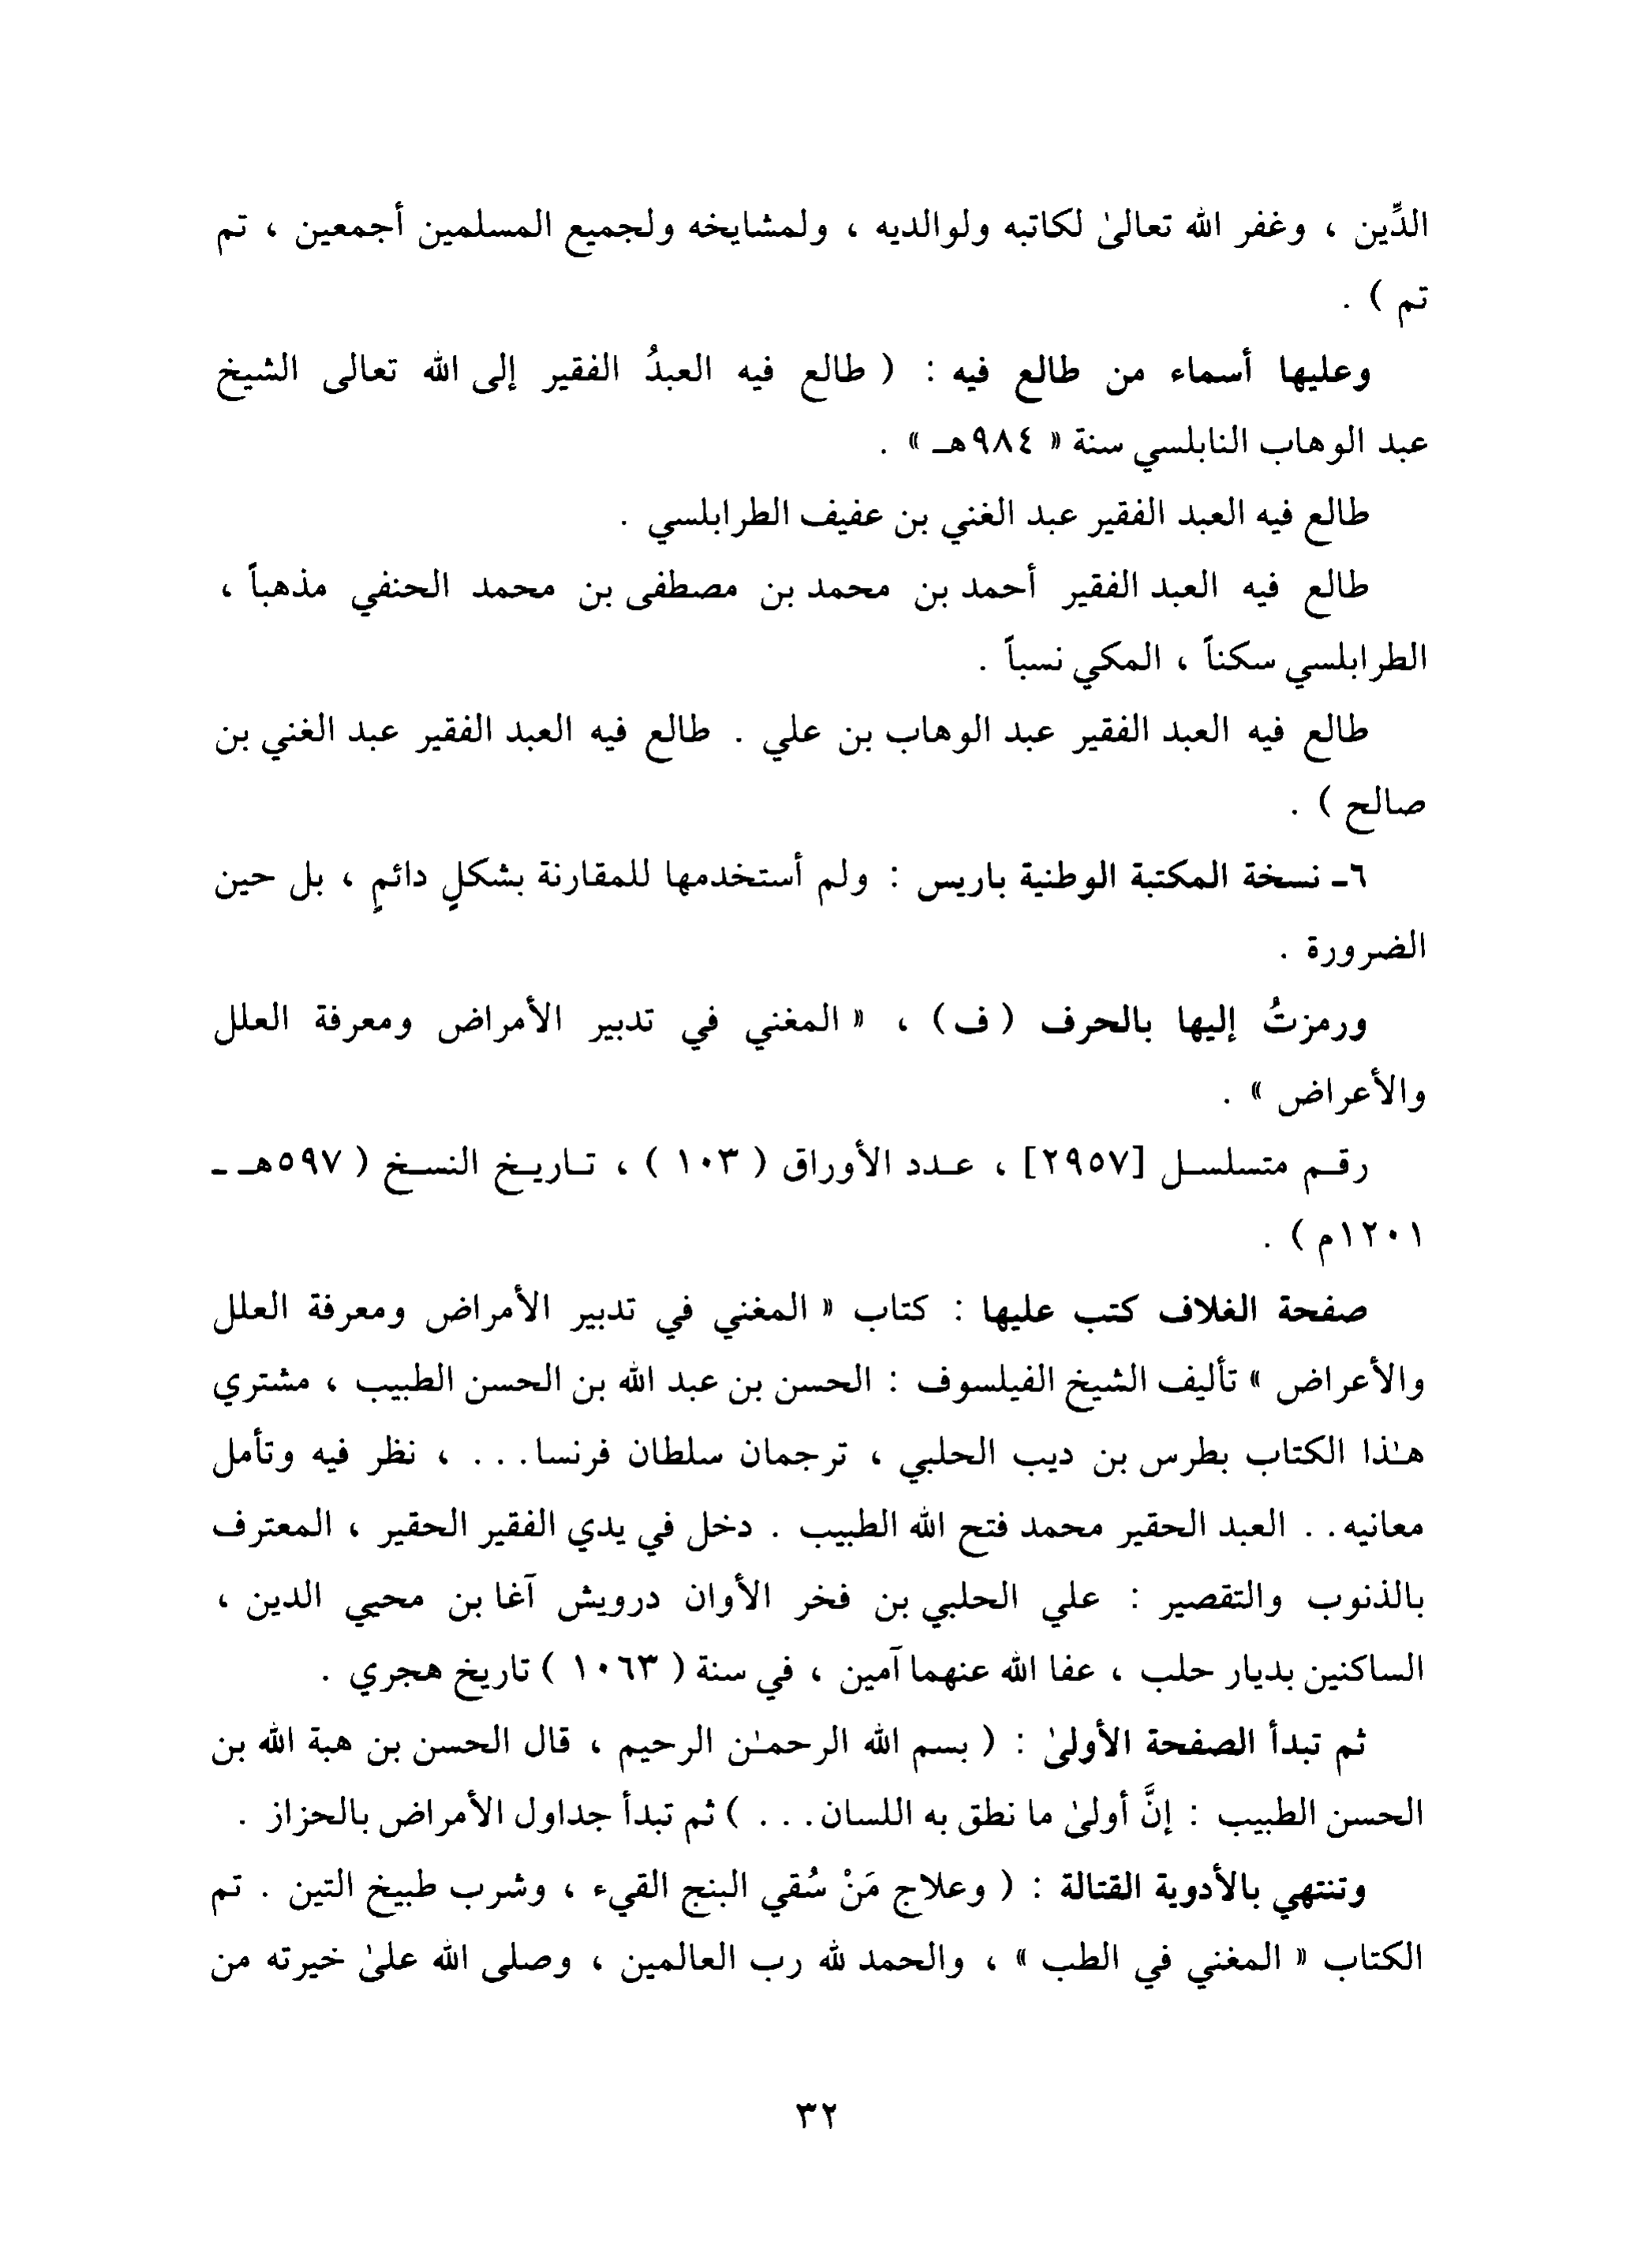 الدِّين ، وغفر الله تعالىٰ لكاتبه ولوالديه ، ولمشايخه ولجميع المسلمين أجمعين ، تم
تم ) .
وعليها أسماء من طالع فيه : ( طالع فيه العبدُ الفقير إلى الله تعالى الشيخ
عبد الوهاب النابلسي سنة « ٩٨٤هـ » .
طالع فيه العبد الفقير عبد الغني بن عفيف الطرابلسي .
طالع فيه العبد الفقير أحمد بن محمد بن مصطفى بن محمد الحنفي مذهباً ،
الطرابلسي سكناً ، المكي نسباً .
طالع فيه العبد الفقير عبد الوهاب بن علي . طالع فيه العبد الفقير عبد الغني بن
صالح ) .
٦ـ نسخة المكتبة الوطنية باريس : ولم أستخدمها للمقارنة بشكلٍ دائمٍ ، بل حين
الضرورة .
ورمزتُ إليها بالحرف ( ف ) ، « المغني في تدبير الأمراض ومعرفة العلل
والأعراض » .
رقم متسلسل [٢٩٥٧] ، عدد الأوراق ( ١٠٣ ) ، تاريخ النسخ ( ٥٩٧هـ ـ
١٢٠١م ) .
صفحة الغلاف كتب عليها : كتاب « المغني في تدبير الأمراض ومعرفة العلل
والأعراض » تأليف الشيخ الفيلسوف : الحسن بن عبد الله بن الحسن الطبيب ، مشتري
هـٰذا الكتاب بطرس بن ديب الحلبي ، ترجمان سلطان فرنسا . . . ، نظر فيه وتأمل
معانيه . . العبد الحقير محمد فتح الله الطبيب . دخل في يدي الفقير الحقير ، المعترف
بالذنوب والتقصير : علي الحلبي بن فخر الأوان درويش آغا بن محيي الدين ،
الساكنين بديار حلب ، عفا الله عنهما آمين ، في سنة ( ١٠٦٣ ) تاريخ هجري .
ثم تبدأ الصفحة الأولىٰ : ( بسم الله الرحمـٰن الرحيم ، قال الحسن بن هبة الله بن
الحسن الطبيب : إنَّ أولىٰ ما نطق به اللسان . . . ) ثم تبدأ جداول الأمراض بالحزاز .
وتنتهي بالأدوية القتالة : ( وعلاج مَنْ سُقي البنج القيء ، وشرب طبيخ التين . تم
الكتاب « المغني في الطب » ، والحمد لله رب العالمين ، وصلى الله علىٰ خيرته من
٣٢